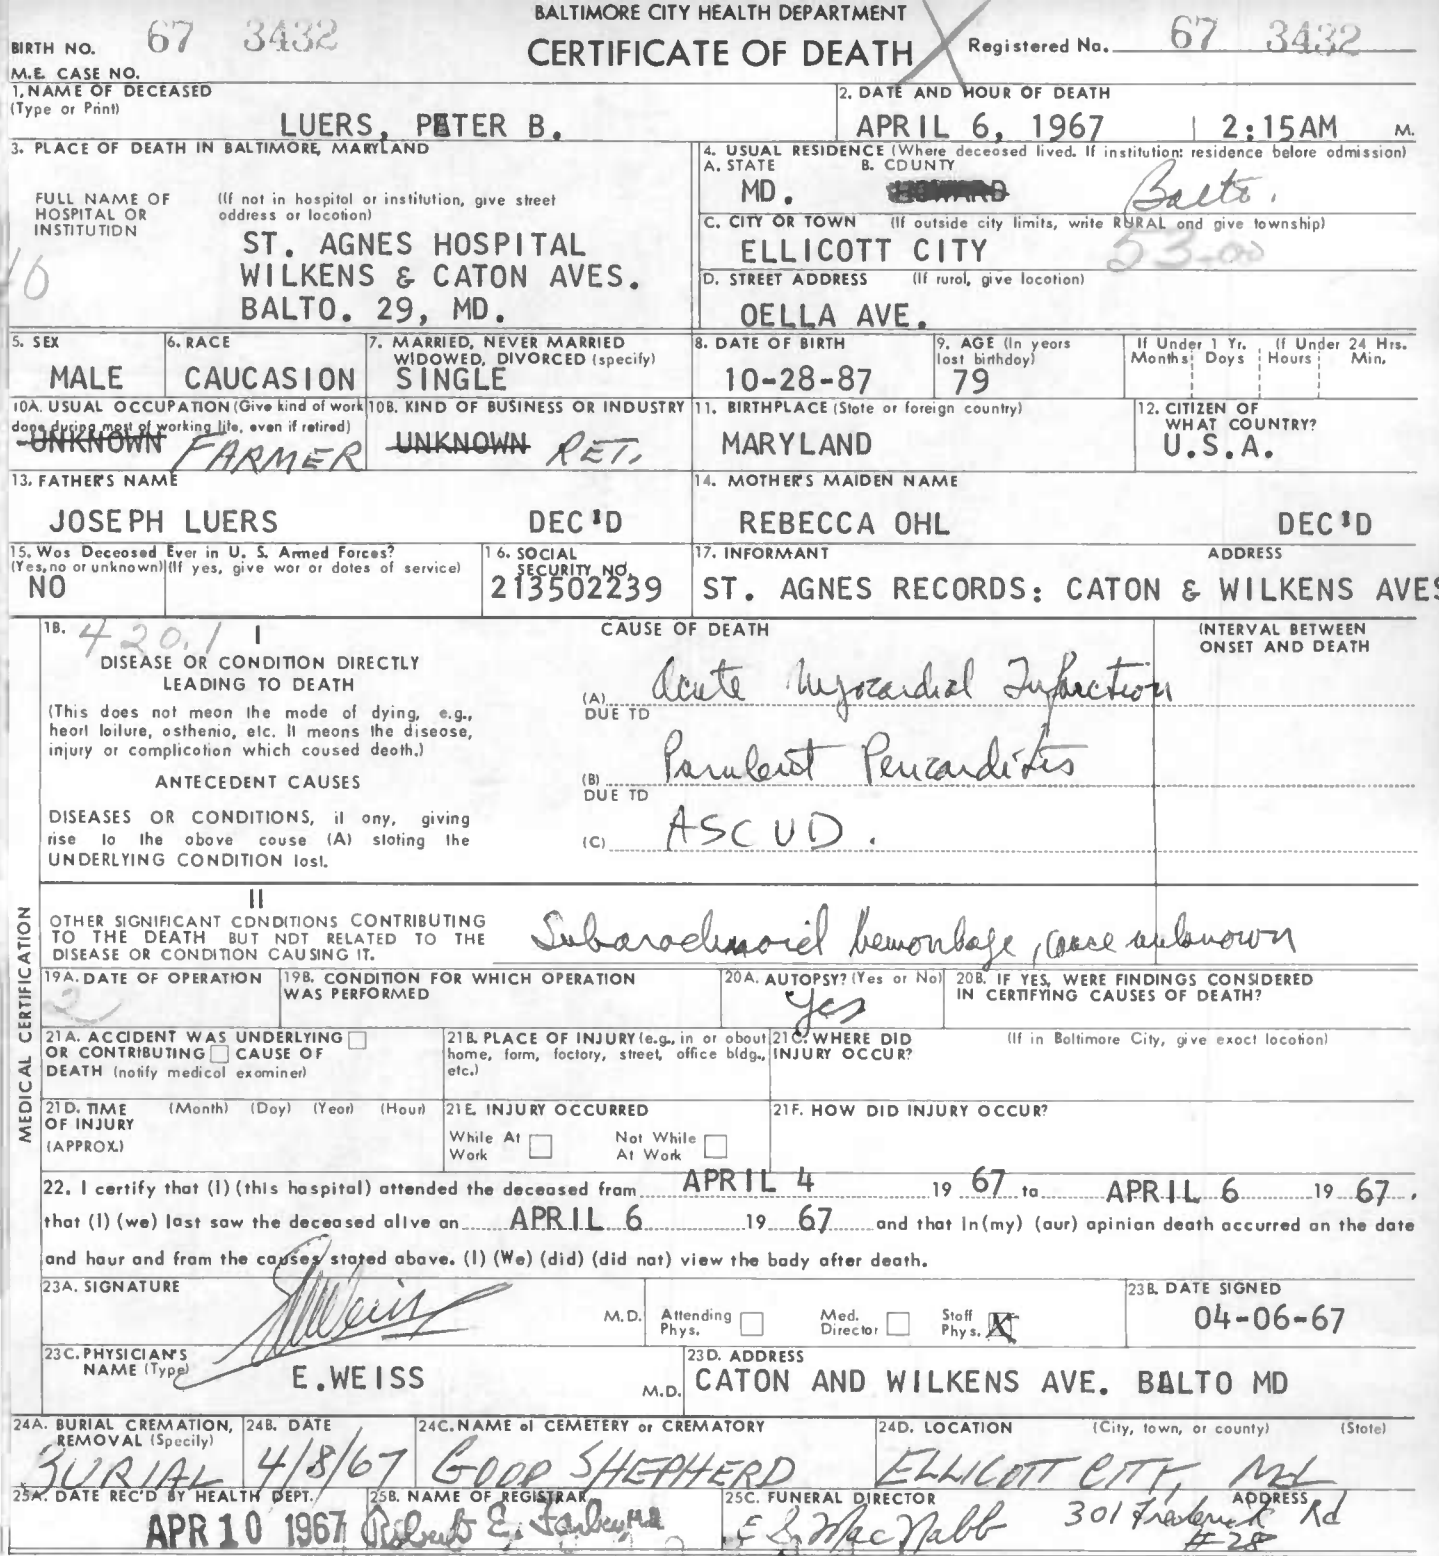 BALTIMORE CITY HEALTH DEPARTMENT
CERTIFICATE OF DEATH
BIRTH NO. 67 3432
Registered No. 67 3432
M.E. CASE NO.
1. NAME OF DECEASED
(Type or Print)
LUERS, PETER B.
2. DATE AND HOUR OF DEATH
APRIL 6, 1967 2:15AM M.
3. PLACE OF DEATH IN BALTIMORE, MARYLAND
FULL NAME OF HOSPITAL OR INSTITUTION
(If not in hospital or institution, give street address or location)
ST. AGNES HOSPITAL
WILKENS & CATON AVES.
BALTO. 29, MD.
4. USUAL RESIDENCE (Where deceased lived. If institution: residence before admission)
A. STATE B. COUNTY
MD. HOWARD Balto.
C. CITY OR TOWN (If outside city limits, write RURAL and give township)
ELLICOTT CITY 53-00
D. STREET ADDRESS (If rural, give location)
OELLA AVE.
5. SEX
MALE
6. RACE
CAUCASION
7. MARRIED, NEVER MARRIED
WIDOWED, DIVORCED (specify)
SINGLE
8. DATE OF BIRTH
10-28-87
9. AGE (In years
last birthday)
79
If Under 1 Yr. If Under 24 Hrs.
Months Days Hours Min.
10A. USUAL OCCUPATION (Give kind of work
done during most of working life, even if retired)
UNKNOWN FARMER
10B. KIND OF BUSINESS OR INDUSTRY
UNKNOWN RET.
11. BIRTHPLACE (State or foreign country)
MARYLAND
12. CITIZEN OF
WHAT COUNTRY?
U.S.A.
13. FATHER'S NAME
JOSEPH LUERS DEC'D
14. MOTHER'S MAIDEN NAME
REBECCA OHL DEC'D
15. Was Deceased Ever in U. S. Armed Forces?
(Yes, no or unknown) (If yes, give war or dates of service)
NO
16. SOCIAL
SECURITY NO.
213502239
17. INFORMANT ADDRESS
ST. AGNES RECORDS: CATON & WILKENS AVES
MEDICAL CERTIFICATION
18. 420.1 I
DISEASE OR CONDITION DIRECTLY
LEADING TO DEATH
(This does not mean the mode of dying, e.g.,
heart failure, asthenia, etc. It means the disease,
injury or complication which caused death.)
ANTECEDENT CAUSES
DISEASES OR CONDITIONS, if any, giving
rise to the above cause (A) stating the
UNDERLYING CONDITION last.
CAUSE OF DEATH
INTERVAL BETWEEN
ONSET AND DEATH
(A) Acute Myocardial Infarction
DUE TO
(B) Purulent Pericarditis
DUE TO
(C) ASCVD.
II
OTHER SIGNIFICANT CONDITIONS CONTRIBUTING
TO THE DEATH BUT NOT RELATED TO THE
DISEASE OR CONDITION CAUSING IT.
Subarachnoid hemorrhage, cause unknown
19A. DATE OF OPERATION
2
19B. CONDITION FOR WHICH OPERATION
WAS PERFORMED
20A. AUTOPSY? (Yes or No)
Yes
20B. IF YES, WERE FINDINGS CONSIDERED
IN CERTIFYING CAUSES OF DEATH?
21A. ACCIDENT WAS UNDERLYING
OR CONTRIBUTING CAUSE OF
DEATH (notify medical examiner)
21B. PLACE OF INJURY (e.g., in or about
home, farm, factory, street, office bldg.,
etc.)
21C. WHERE DID
INJURY OCCUR?
(If in Baltimore City, give exact location)
21D. TIME (Month) (Day) (Year) (Hour)
OF INJURY
(APPROX.)
21E. INJURY OCCURRED
While At
Work
Not While
At Work
21F. HOW DID INJURY OCCUR?
22. I certify that (I) (this hospital) attended the deceased from APRIL 4 19 67 to APRIL 6 19 67,
that (I) (we) last saw the deceased alive on APRIL 6 19 67 and that in (my) (our) opinion death occurred on the date
and hour and from the causes stated above. (I) (We) (did) (did not) view the body after death.
23A. SIGNATURE
EWeiss
M.D. Attending
Phys.
Med.
Director
Staff
Phys. X
23B. DATE SIGNED
04-06-67
23C. PHYSICIAN'S
NAME (Type)
E.WEISS M.D.
23D. ADDRESS
CATON AND WILKENS AVE. BALTO MD
24A. BURIAL CREMATION,
REMOVAL (Specify)
BURIAL
24B. DATE
4/8/67
24C. NAME of CEMETERY or CREMATORY
GOOD SHEPHERD
24D. LOCATION (City, town, or county) (State)
ELLICOTT CITY, Md
25A. DATE REC'D BY HEALTH DEPT.
APR 10 1967
25B. NAME OF REGISTRAR
Robert E. Farber, MD
25C. FUNERAL DIRECTOR ADDRESS
E S MacNabb 301 Frederick Rd
#28